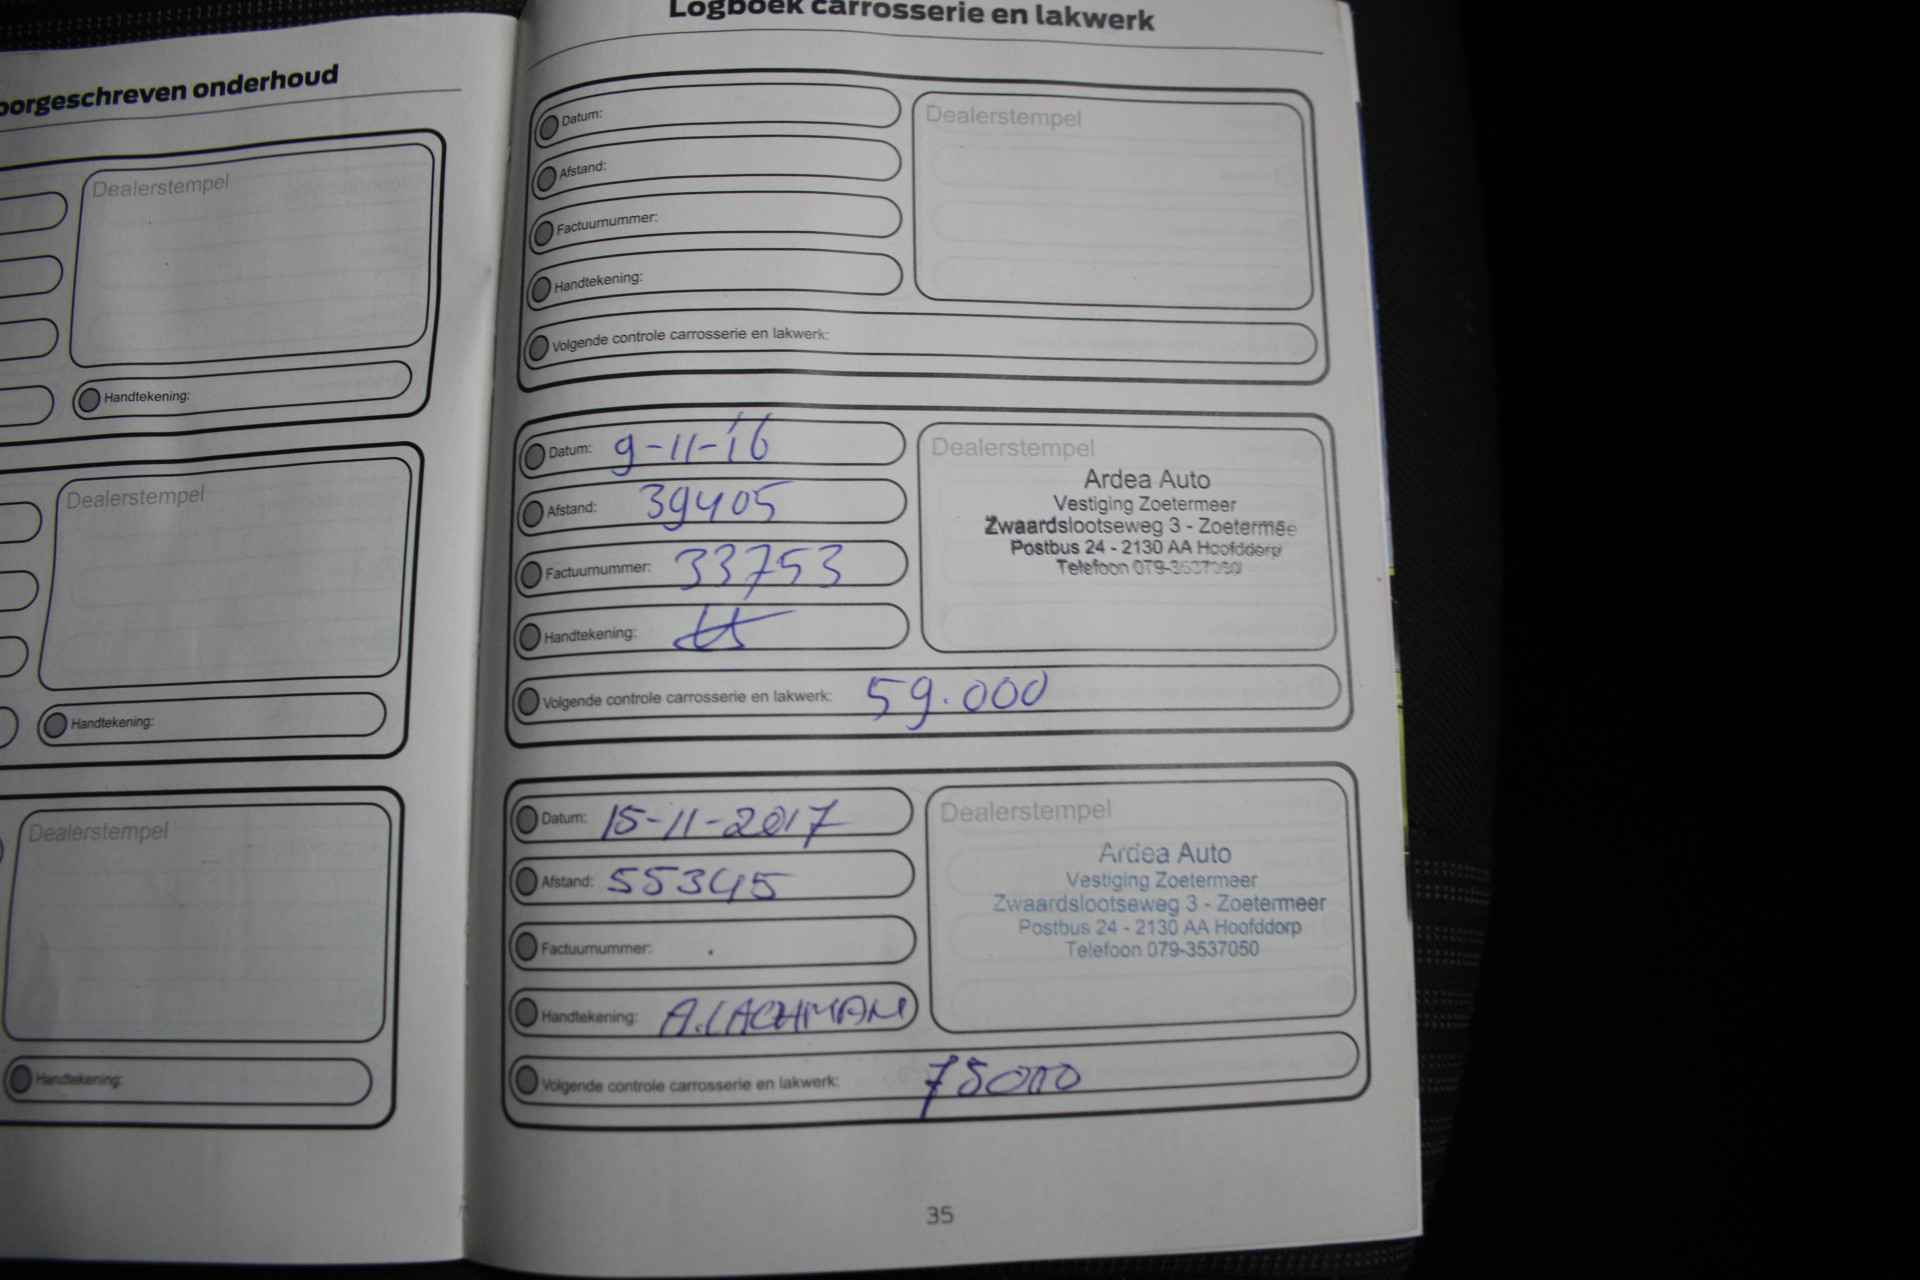 oorgeschreven onderhoud
Dealerstempel
Handtekening:
Dealerstempel
Handtekening:
Dealerstempel
Handtekening:
Logboek carrosserie en lakwerk
Datum:
Afstand:
Factuurnummer:
Handtekening:
Volgende controle carrosserie en lakwerk:
Dealerstempel
Datum: 9-11-16
Afstand: 39405
Factuurnummer: 33753
Handtekening:
Volgende controle carrosserie en lakwerk: 59.000
Dealerstempel
Ardea Auto
Vestiging Zoetermeer
Zwaardslootseweg 3 - Zoetermee
Postbus 24 - 2130 AA Hoofddorp
Telefoon
Datum: 15-11-2017
Afstand: 55345
Factuurnummer:
Handtekening: A.LACHMAN
Volgende controle carrosserie en lakwerk: 75000
Dealerstempel
Ardea Auto
Vestiging Zoetermeer
Zwaardslootseweg 3 - Zoetermeer
Postbus 24 - 2130 AA Hoofddorp
Telefoon 079-3537050
35